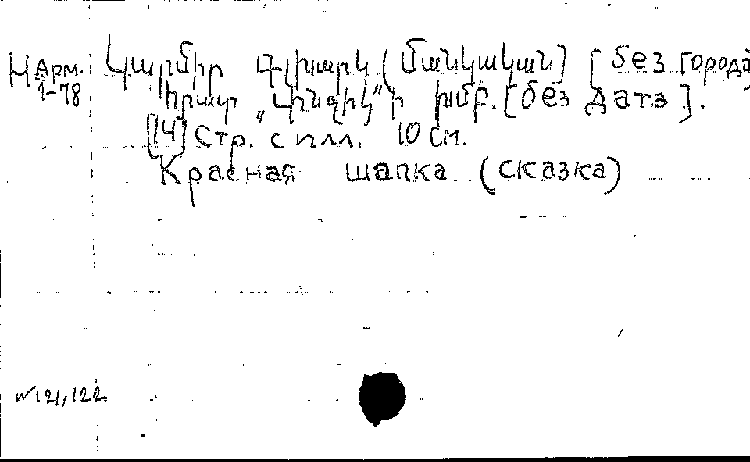 Н Арм. Կարմիր գլխարկ (Մանկական) [без города]
1-78 հրատ „Կինզիկ“ի խմբ. [без даты].
[14] стр. с илл. 10 см.
Красная шапка (сказка)
№ 121, 122